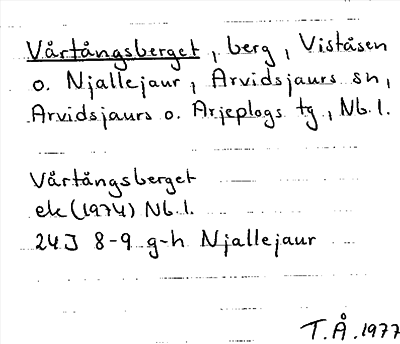 Vårtångsberget, berg, Viståsen
o. Njallejaur, Arvidsjaurs sn,
Arvidsjaurs o. Arjeplogs tg, Nb.l.
Vårtångsberget
ek (1974) Nb.l.
24J 8-9 g-h Njallejaur
T.Å. 1977